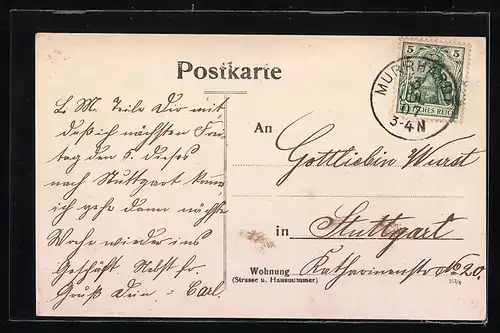 Postkarte
5 5
MURRHARDT
07
3-4N
DEUTSCHES REICH
L. M. Teile Dir mit,
daß ich nächsten Frei
tag den 8. dieses
nach Stuttgart komme
ich gehe dann nächste
Woche wieder ins
Geschäft. Nebst fr.
Gruß Dein = Carl.
An
Gottliebin Wurst
in Stuttgart
Wohnung Katharinenstr No 20.
(Strasse u. Hausnummer)